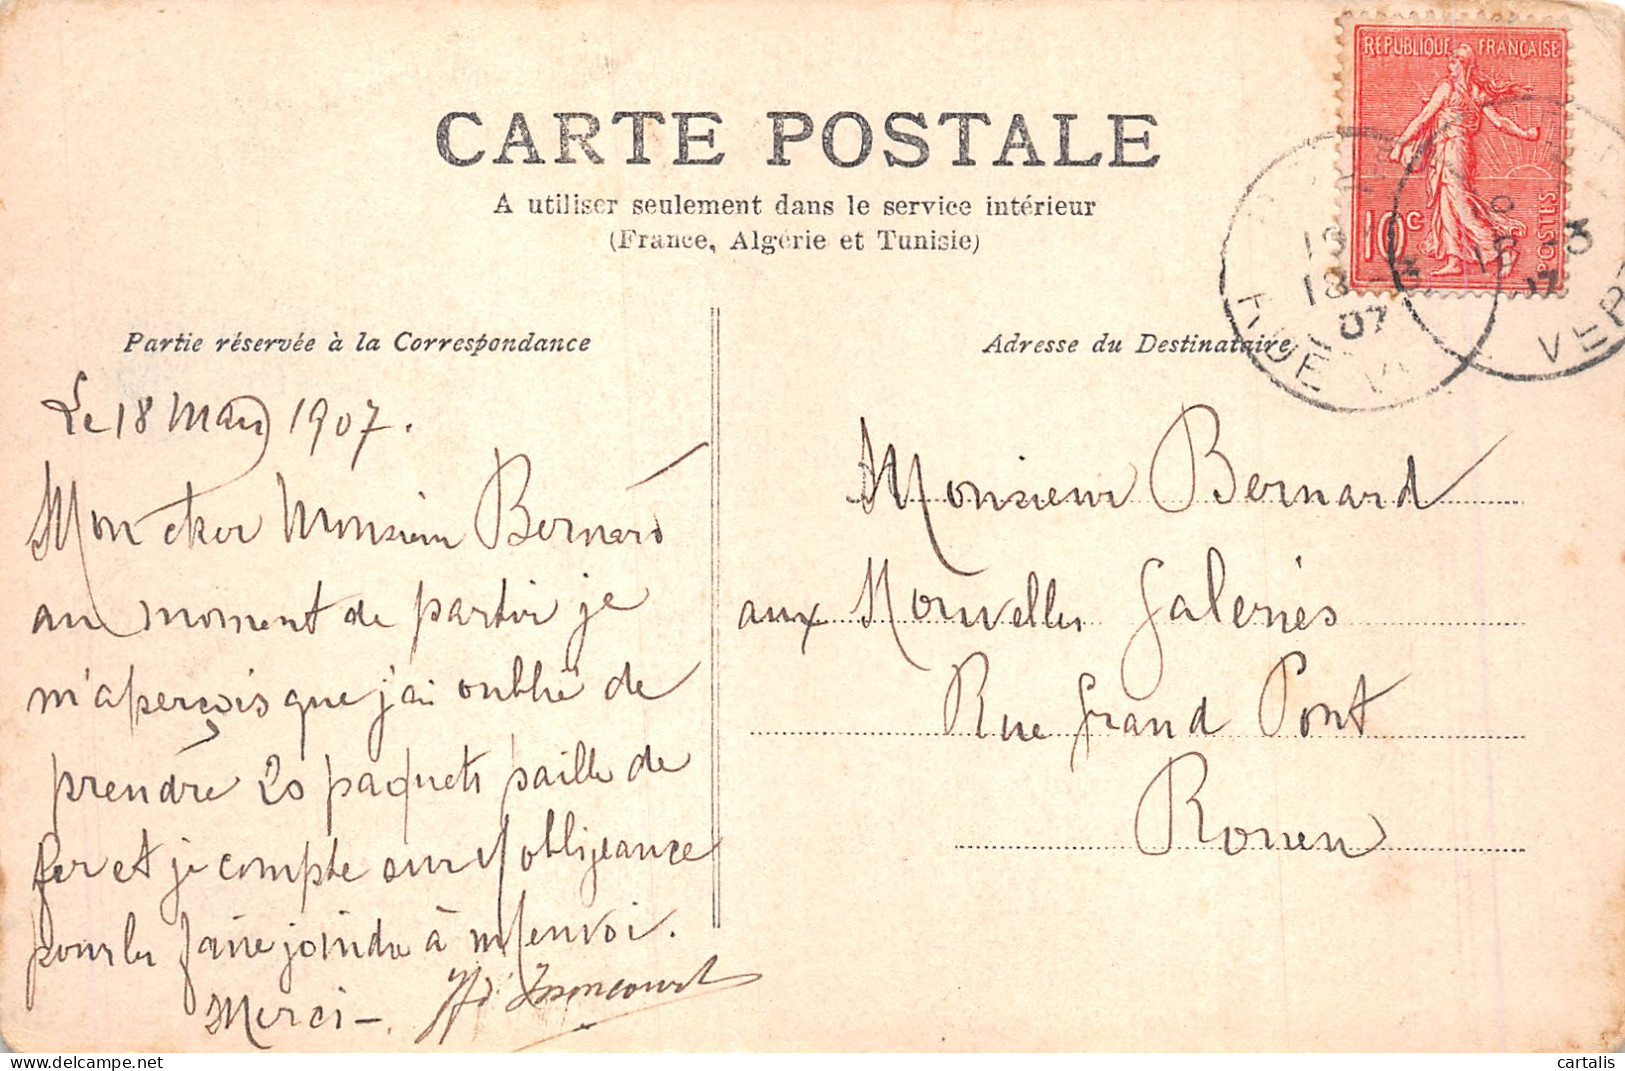 CARTE POSTALE
A utiliser seulement dans le service intérieur
(France, Algérie et Tunisie)
REPUBLIQUE FRANÇAISE
10c
POSTES
18 -3
07
RUE
18 -3
07
VER
Partie réservée à la Correspondance
Le 18 Mars 1907.
Mon cher Monsieur Bernard
au moment de partir je
m'aperçois que j'ai oublié de
prendre 20 paquets paille de
fer et je compte sur v/ obligeance
pour les faire joindre à m/ envoi.
Merci -
Adresse du Destinataire
Monsieur Bernard
aux Nouvelles Galeries
Rue Grand Pont
Rouen
cartalis